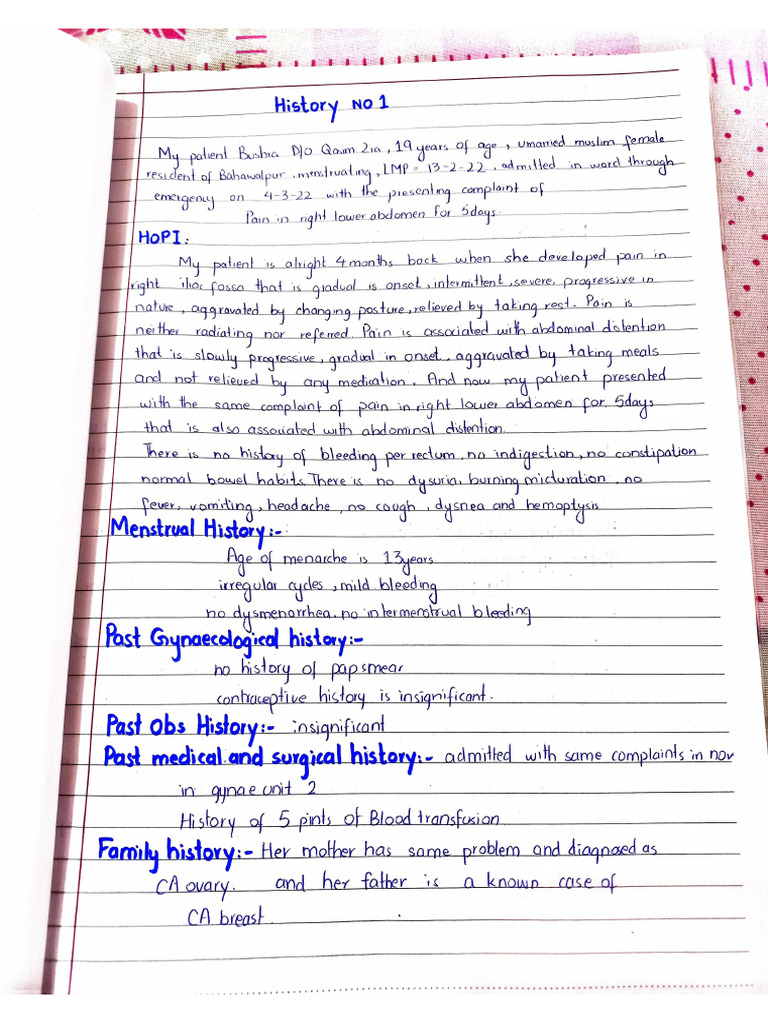 History No 1
My patient Bushra D/O Qaum Zia, 19 years of age, umarried muslim female
resident of Bahawalpur, menstruating, LMP = 13-2-22, admitted in ward through
emergency on 4-3-22 with the presenting complaint of
Pain in right lower abdomen for 5days
HOPI:
My patient is alright 4months back when she developed pain in
right iliac fossa that is gradual is onset, intermittent, severe, progressive in
nature, aggravated by changing posture, relieved by taking rest. Pain is
neither radiating nor referred. Pain is associated with abdominal distention
that is slowly progressive, gradual in onset, aggravated by taking meals
and not relieved by any medication. And now my patient presented
with the same complaint of pain in right lower abdomen for 5days
that is also associated with abdominal distention.
There is no history of bleeding per rectum, no indigestion, no constipation
normal bowel habits. There is no dysuria, burning micturation, no
fever, vomiting, headache, no cough, dysnea and hemoptysis
Menstrual History:-
Age of menarche is 13years
irregular cycles, mild bleeding
no dysmenorrhea. no intermenstrual bleeding
Past Gynaecological history:-
no history of papsmear
contraceptive history is insignificant.
Past Obs History:- insignificant
Past medical and surgical history:- admitted with same complaints in nov
in gynae unit 2
History of 5 pints of Blood transfusion
Family history:- Her mother has same problem and diagnosed as
CA ovary. and her father is a known case of
CA breast